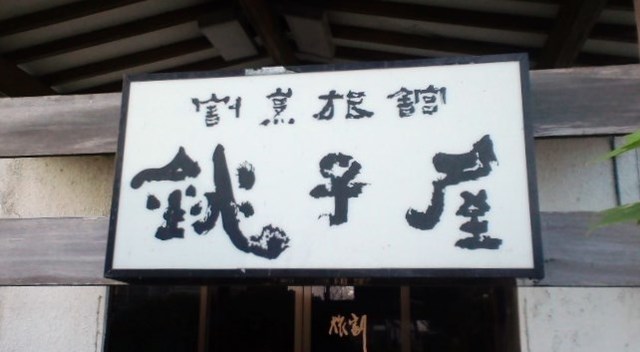 割烹旅館
銚子屋
割旅